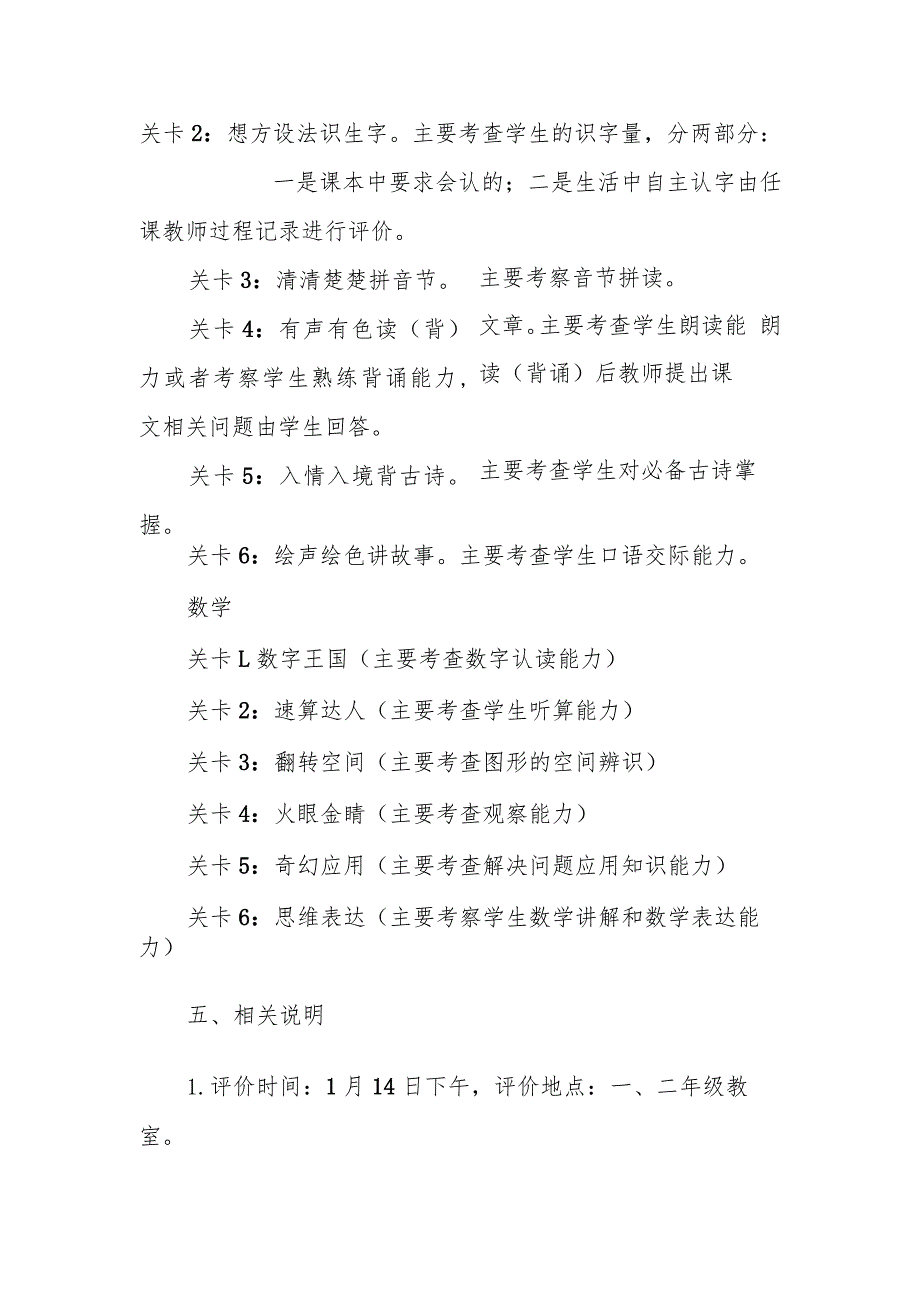 关卡2：想方设法识生字。主要考查学生的识字量，分两部分：
一是课本中要求会认的；二是生活中自主认字由任
课教师过程记录进行评价。
关卡3：清清楚楚拼音节。 主要考察音节拼读。
关卡4：有声有色读（背）文章。主要考查学生朗读能 朗
力或者考察学生熟练背诵能力, 读（背诵）后教师提出课
文相关问题由学生回答。
关卡5：入情入境背古诗。 主要考查学生对必备古诗掌
握。
关卡6：绘声绘色讲故事。主要考查学生口语交际能力。
数学
关卡L数字王国（主要考查数字认读能力）
关卡2：速算达人（主要考查学生听算能力）
关卡3：翻转空间（主要考查图形的空间辨识）
关卡4：火眼金睛（主要考查观察能力）
关卡5：奇幻应用（主要考查解决问题应用知识能力）
关卡6：思维表达（主要考察学生数学讲解和数学表达能
力）
五、相关说明
1.评价时间：1月14日下午，评价地点：一、二年级教
室。